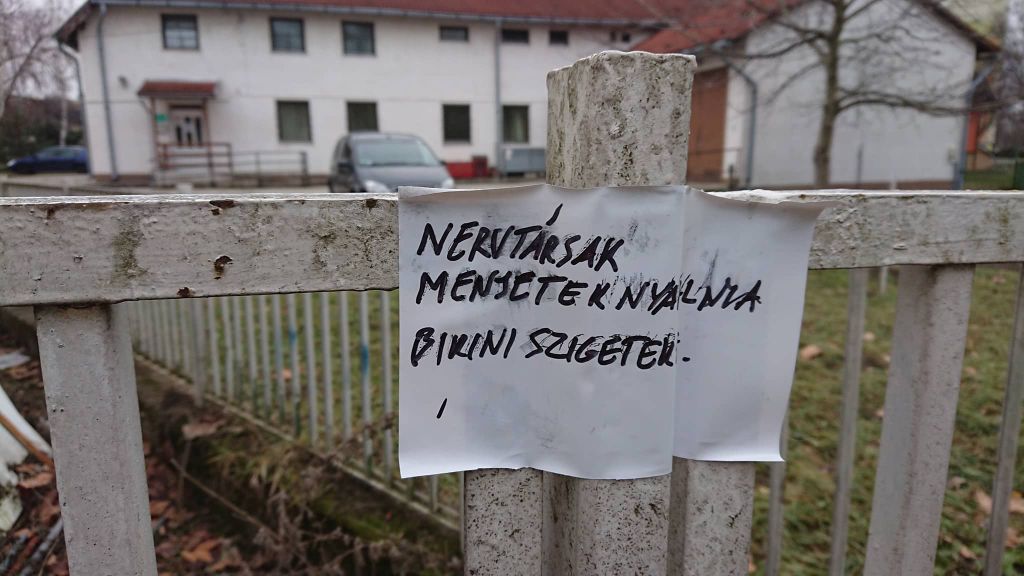 NERVTÁRSAK
MENJETEK NYALNIA
BIKINI SZIGETEK.